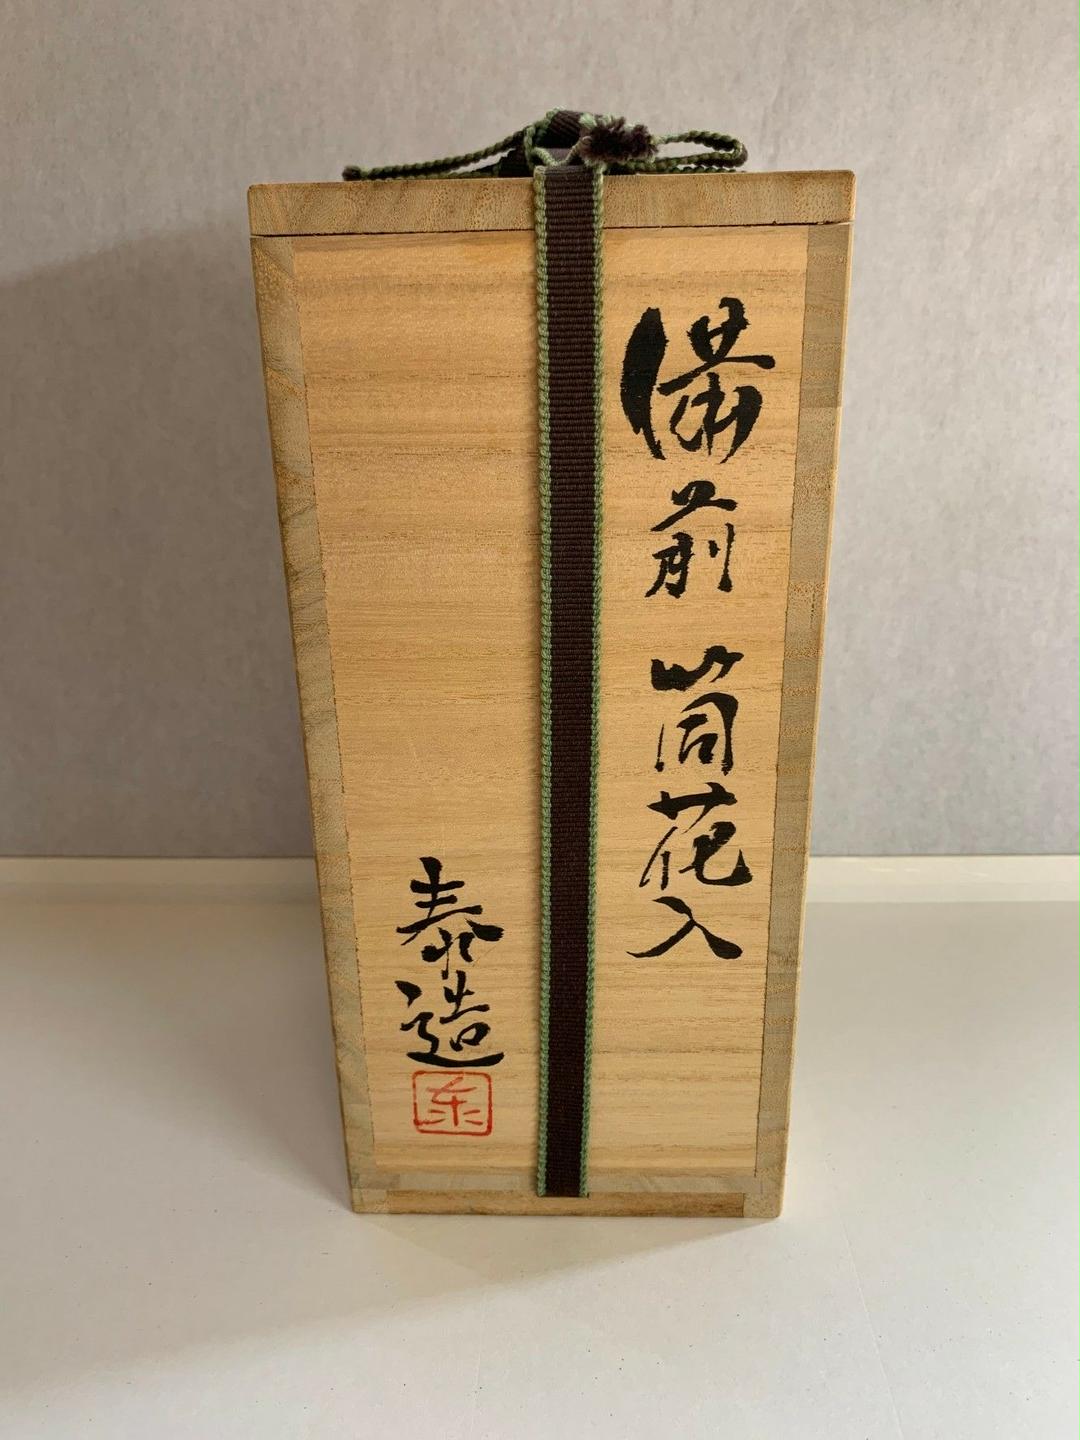 備前 筒花入
泰造